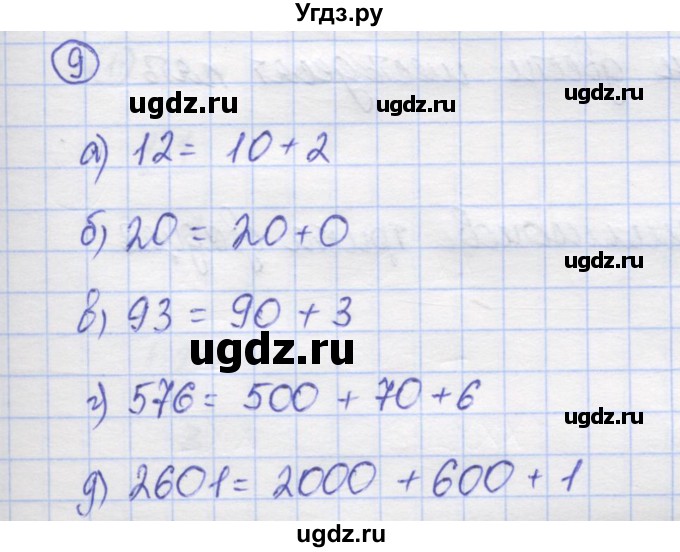 Угдз.ру
9
ugdz.ru ugdz.ru
а) 12 = 10 + 2
б) 20 = 20 + 0
ugdz.ru
в) 93 = 90 + 3
ugdz.ru
г) 576 = 500 + 70 + 6
ugdz.ru
д) 2601 = 2000 + 600 + 1
ugdz.ru